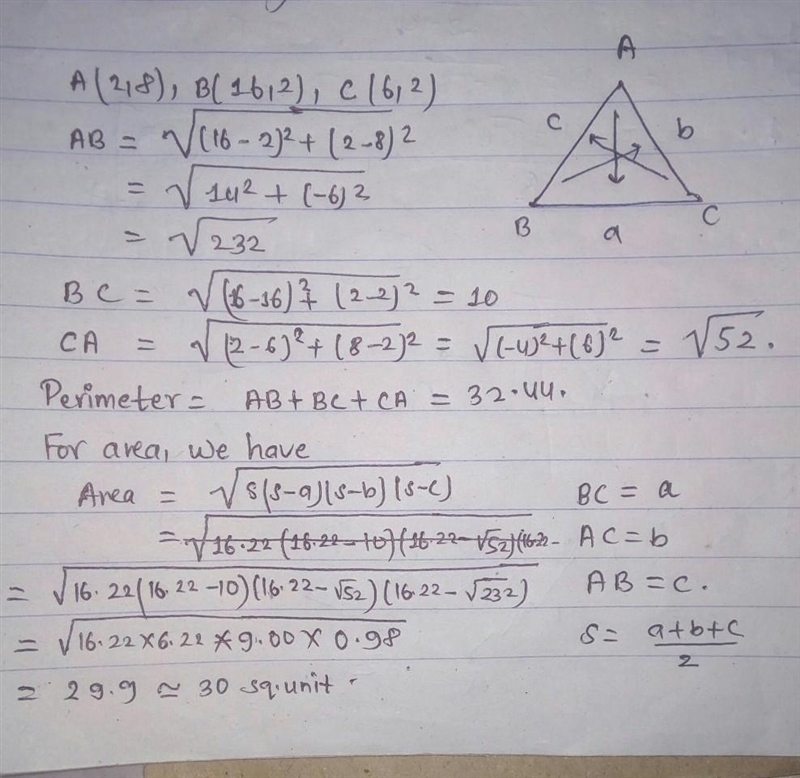 A(2,8), B(16,2), C(6,2)
AB = √((16-2)² + (2-8)²
= √(14² + (-6)²)
= √232
A
c
b
B
a
C
BC = √((6-16)² + (2-2)²) = 10
CA = √((2-6)² + (8-2)²) = √((-4)² + (6)²) = √52.
Perimeter = AB + BC + CA = 32.44.
For area, we have
Area = √(s(s-a)(s-b)(s-c)) BC = a
= √(16.22(16.22-10)(16.22-√52)(16.22- AC = b
= √(16.22(16.22-10)(16.22-√52)(16.22-√232)) AB = c.
= √(16.22×6.22×9.00×0.98) S = (a+b+c)/2
= 29.9 ≃ 30 sq.unit